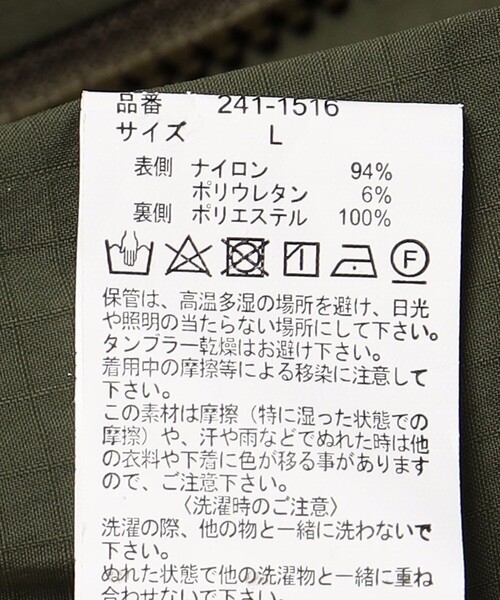 品番 241-1516
サイズ L
表側 ナイロン 94%
ポリウレタン 6%
裏側 ポリエステル 100%
F
保管は、高温多湿の場所を避け、日光
や照明の当たらない場所にして下さい。
タンブラー乾燥はお避け下さい。
着用中の摩擦等による移染に注意して
下さい。
この素材は摩擦（特に湿った状態での
摩擦）や、汗や雨などでぬれた時は他
の衣料や下着に色が移る事があります
ので、ご注意下さい。
〈洗濯時のご注意〉
洗濯の際、他の物と一緒に洗わないで
下さい。
ぬれた状態で他の洗濯物と一緒に重ね
合わせないで下さい。